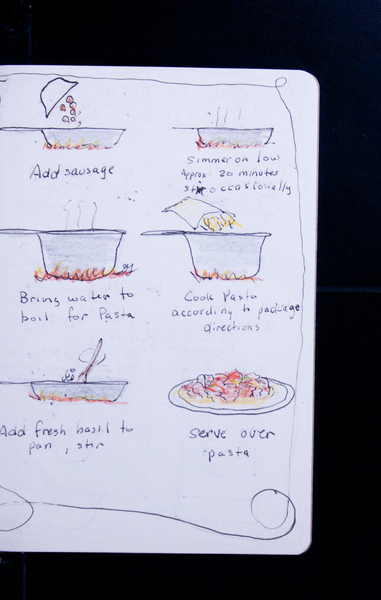 Add sausage
Simmer on low
Approx 20 minutes
stir occasionally
Bring water to
boil for Pasta
Cook Pasta
according to package
directions
Add fresh basil to
pan, stir
serve over
pasta